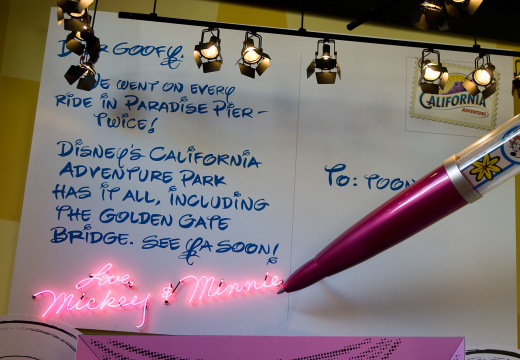 Dear Goofy
We went on every
ride in Paradise Pier -
twice!
Disney's California
Adventure Park
has it all, including
the Golden Gate
Bridge. See ya soon!
Love,
Mickey & Minnie
To: Toon
California
Adventure